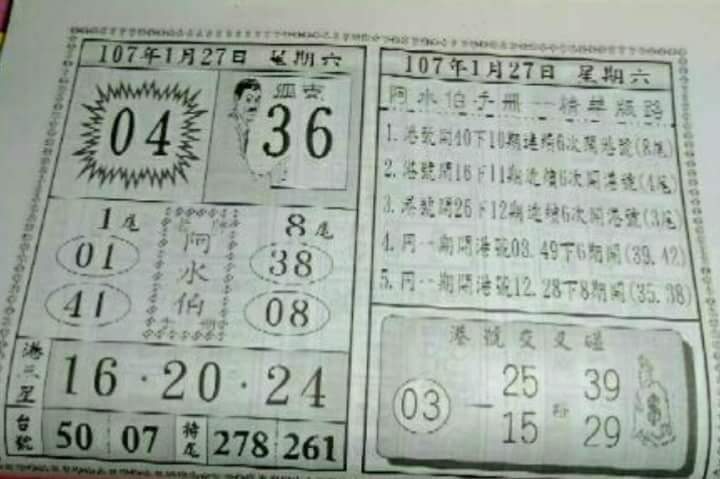 107年1月27日 星期六
04
36
1尾 8尾
01
38
阿水伯
41
08
港三星
16．20．24
台號 50 07 特尾 278 261
107年1月27日 星期六
阿水伯手冊---精華版路
1.港號開40下10期連續6次開港號(8尾)
2.港號開16下11期連續6次開港號(4尾)
3.港號開26下12期連續6次開港號(3尾)
4.同一期開港號03.49下6期開(39.42)
5.同一期開港號12.28下8期開(35.38)
港號交叉碰
25 39
03
15 29